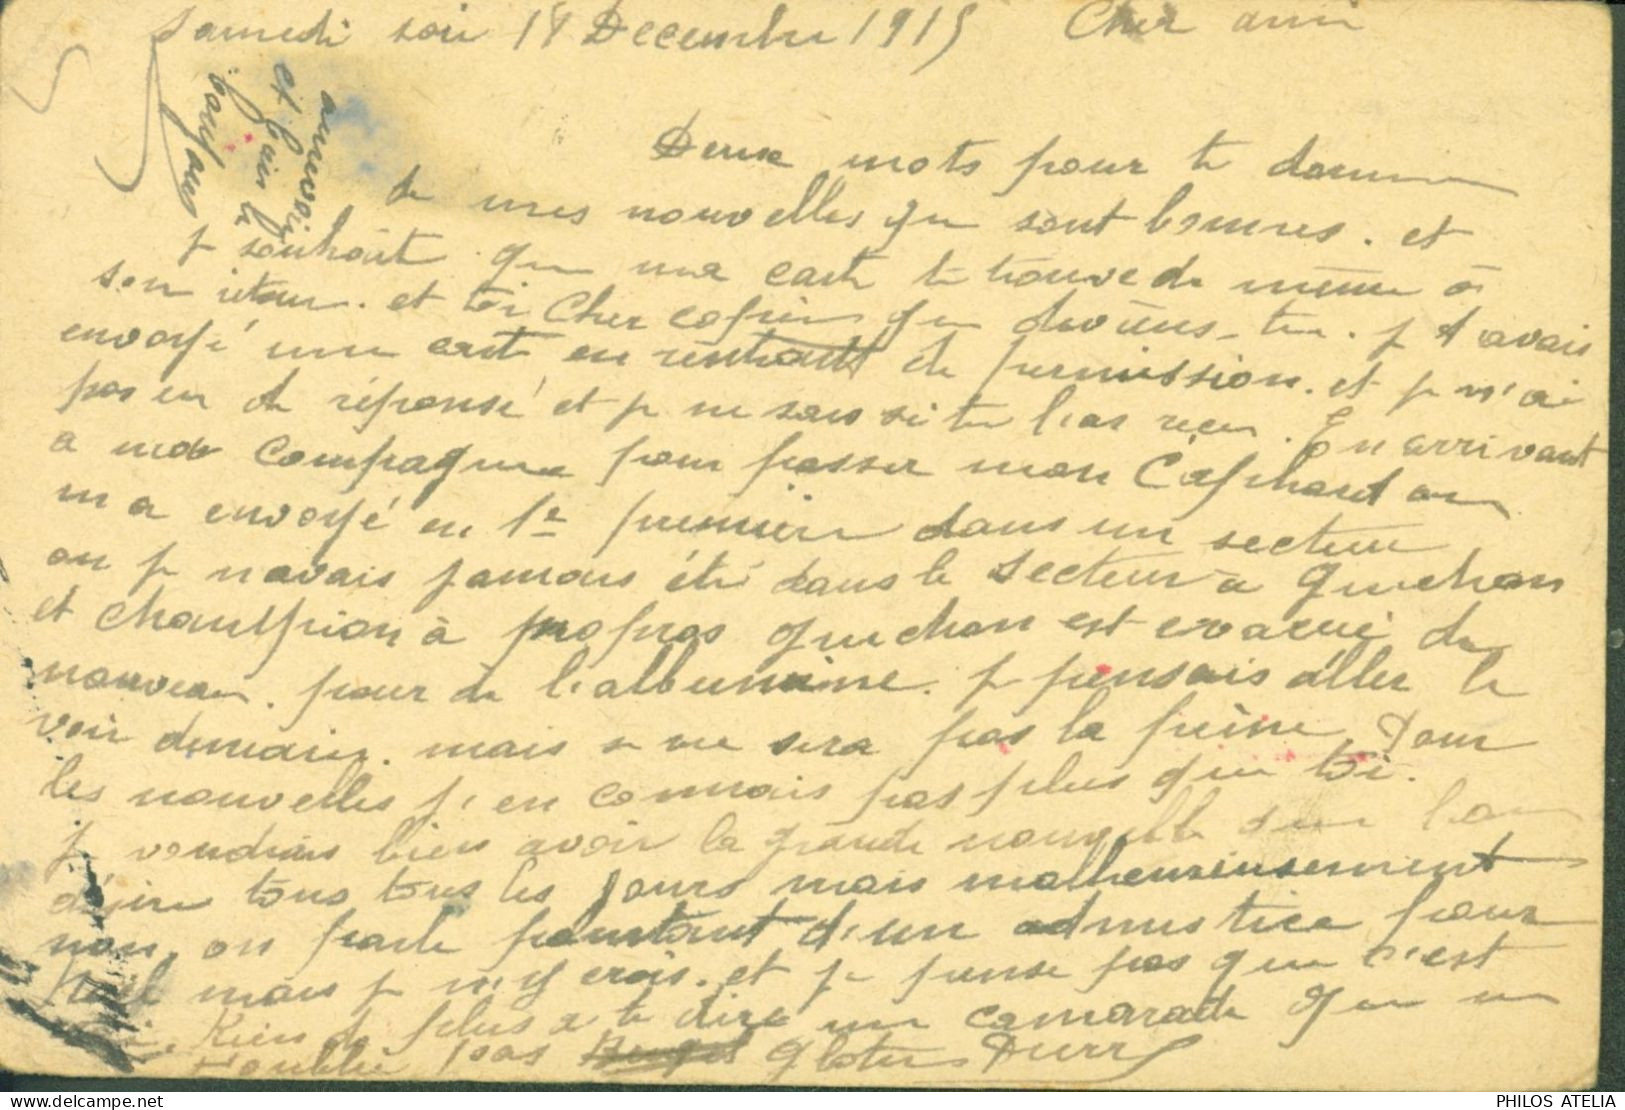 Samedi soir 18 Decembre 1915 Cher ami
Deux mots pour te donner
de mes nouvelles qui sont bonnes. et
je souhait que ma carte te trouve de même à
son retour. et toi Cher copin que deviens-tu. je t'avais
envoyé une carte en rentrant de permission. et je n'ai
pas eu de réponse et je ne sais si tu l'as reçu. En arrivant
a ma compagnie pour passer mon Cafhard on
m'a envoyé en 1e premiere dans un secteur
ou je n'avais jamais été dans le secteur a
et à propos est evacué de
nouveau. pour de l'albumine. je pensais aller le
voir demain. mais ce ne sera pas la peine Pour
les nouvelles j'en connais pas plus que toi.
je voudrais bien avoir la grande nouvelle que l'on
désire tous tous les jours mais malheureusement
non, on parle pourtant d'un admistice pour
Noël mais je n'y crois. et je pense pas que c'est
Rien de plus a te dire un camarade que ne
t'oublie pas
au revoir
et fais le